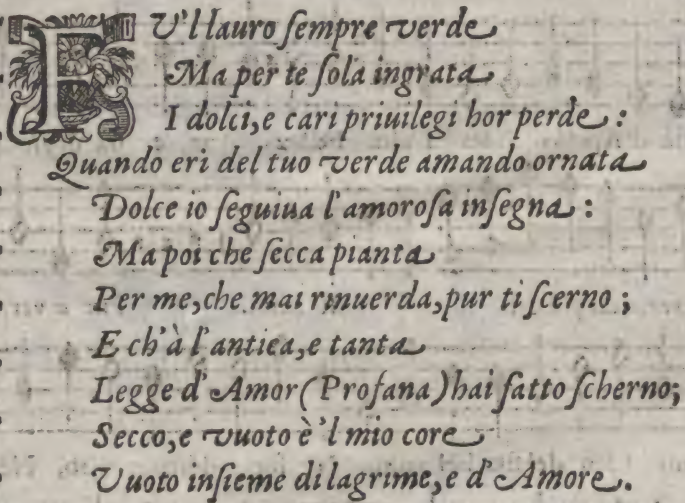 FV'l lauro ſempre verde
Ma per te ſola ingrata
I dolci, e cari priuilegi hor perde :
Quando eri del tuo verde amando ornata
Dolce io ſeguiua l'amoroſa inſegna :
Ma poi che ſecca pianta
Per me, che mai rinuerda, pur ti ſcerno ;
E ch'à l'antica, e tanta
Legge d'Amor (Profana) hai fatto ſcherno;
Secco, e vuoto è 'l mio core
Vuoto inſieme di lagrime, e d'Amore.